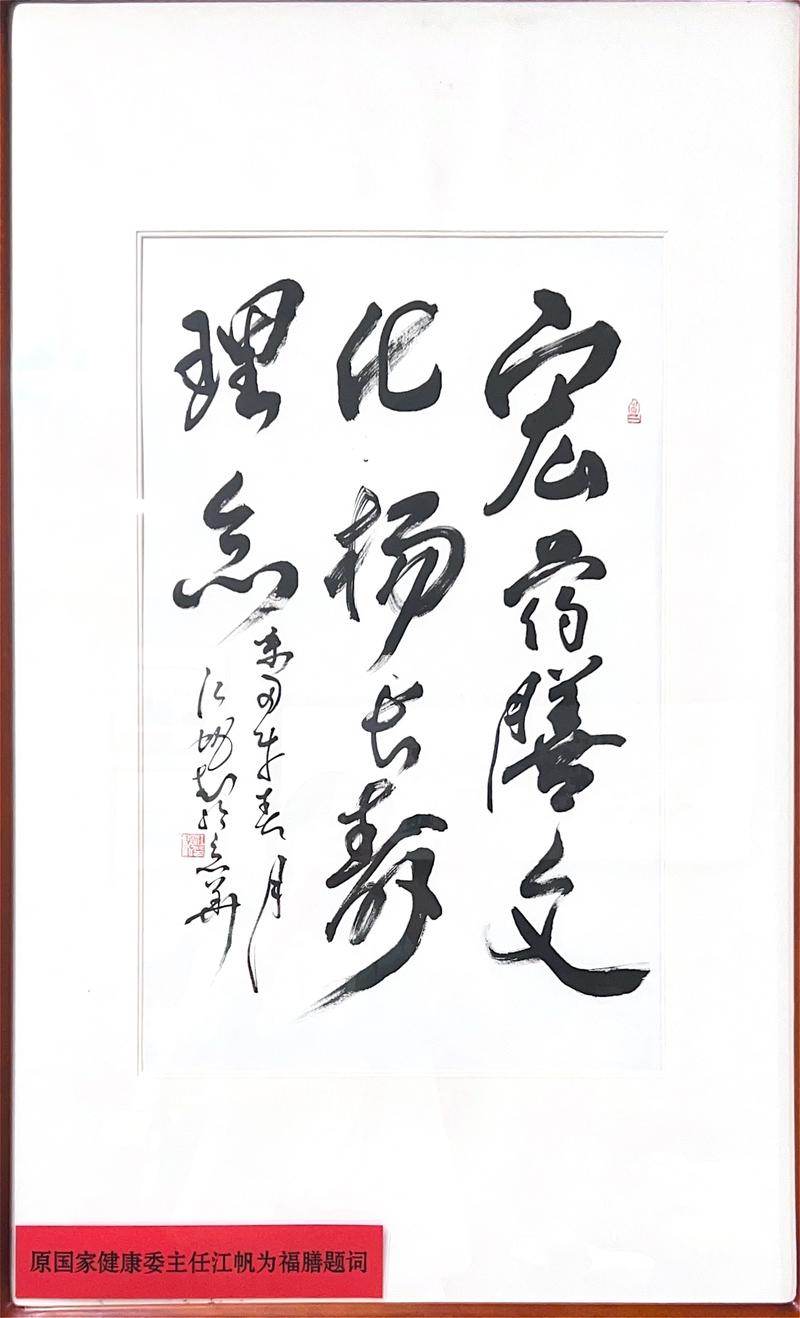 宏药膳文
化扬长寿
理念
年春月
江帆
原国家健康委主任江帆为福膳题词